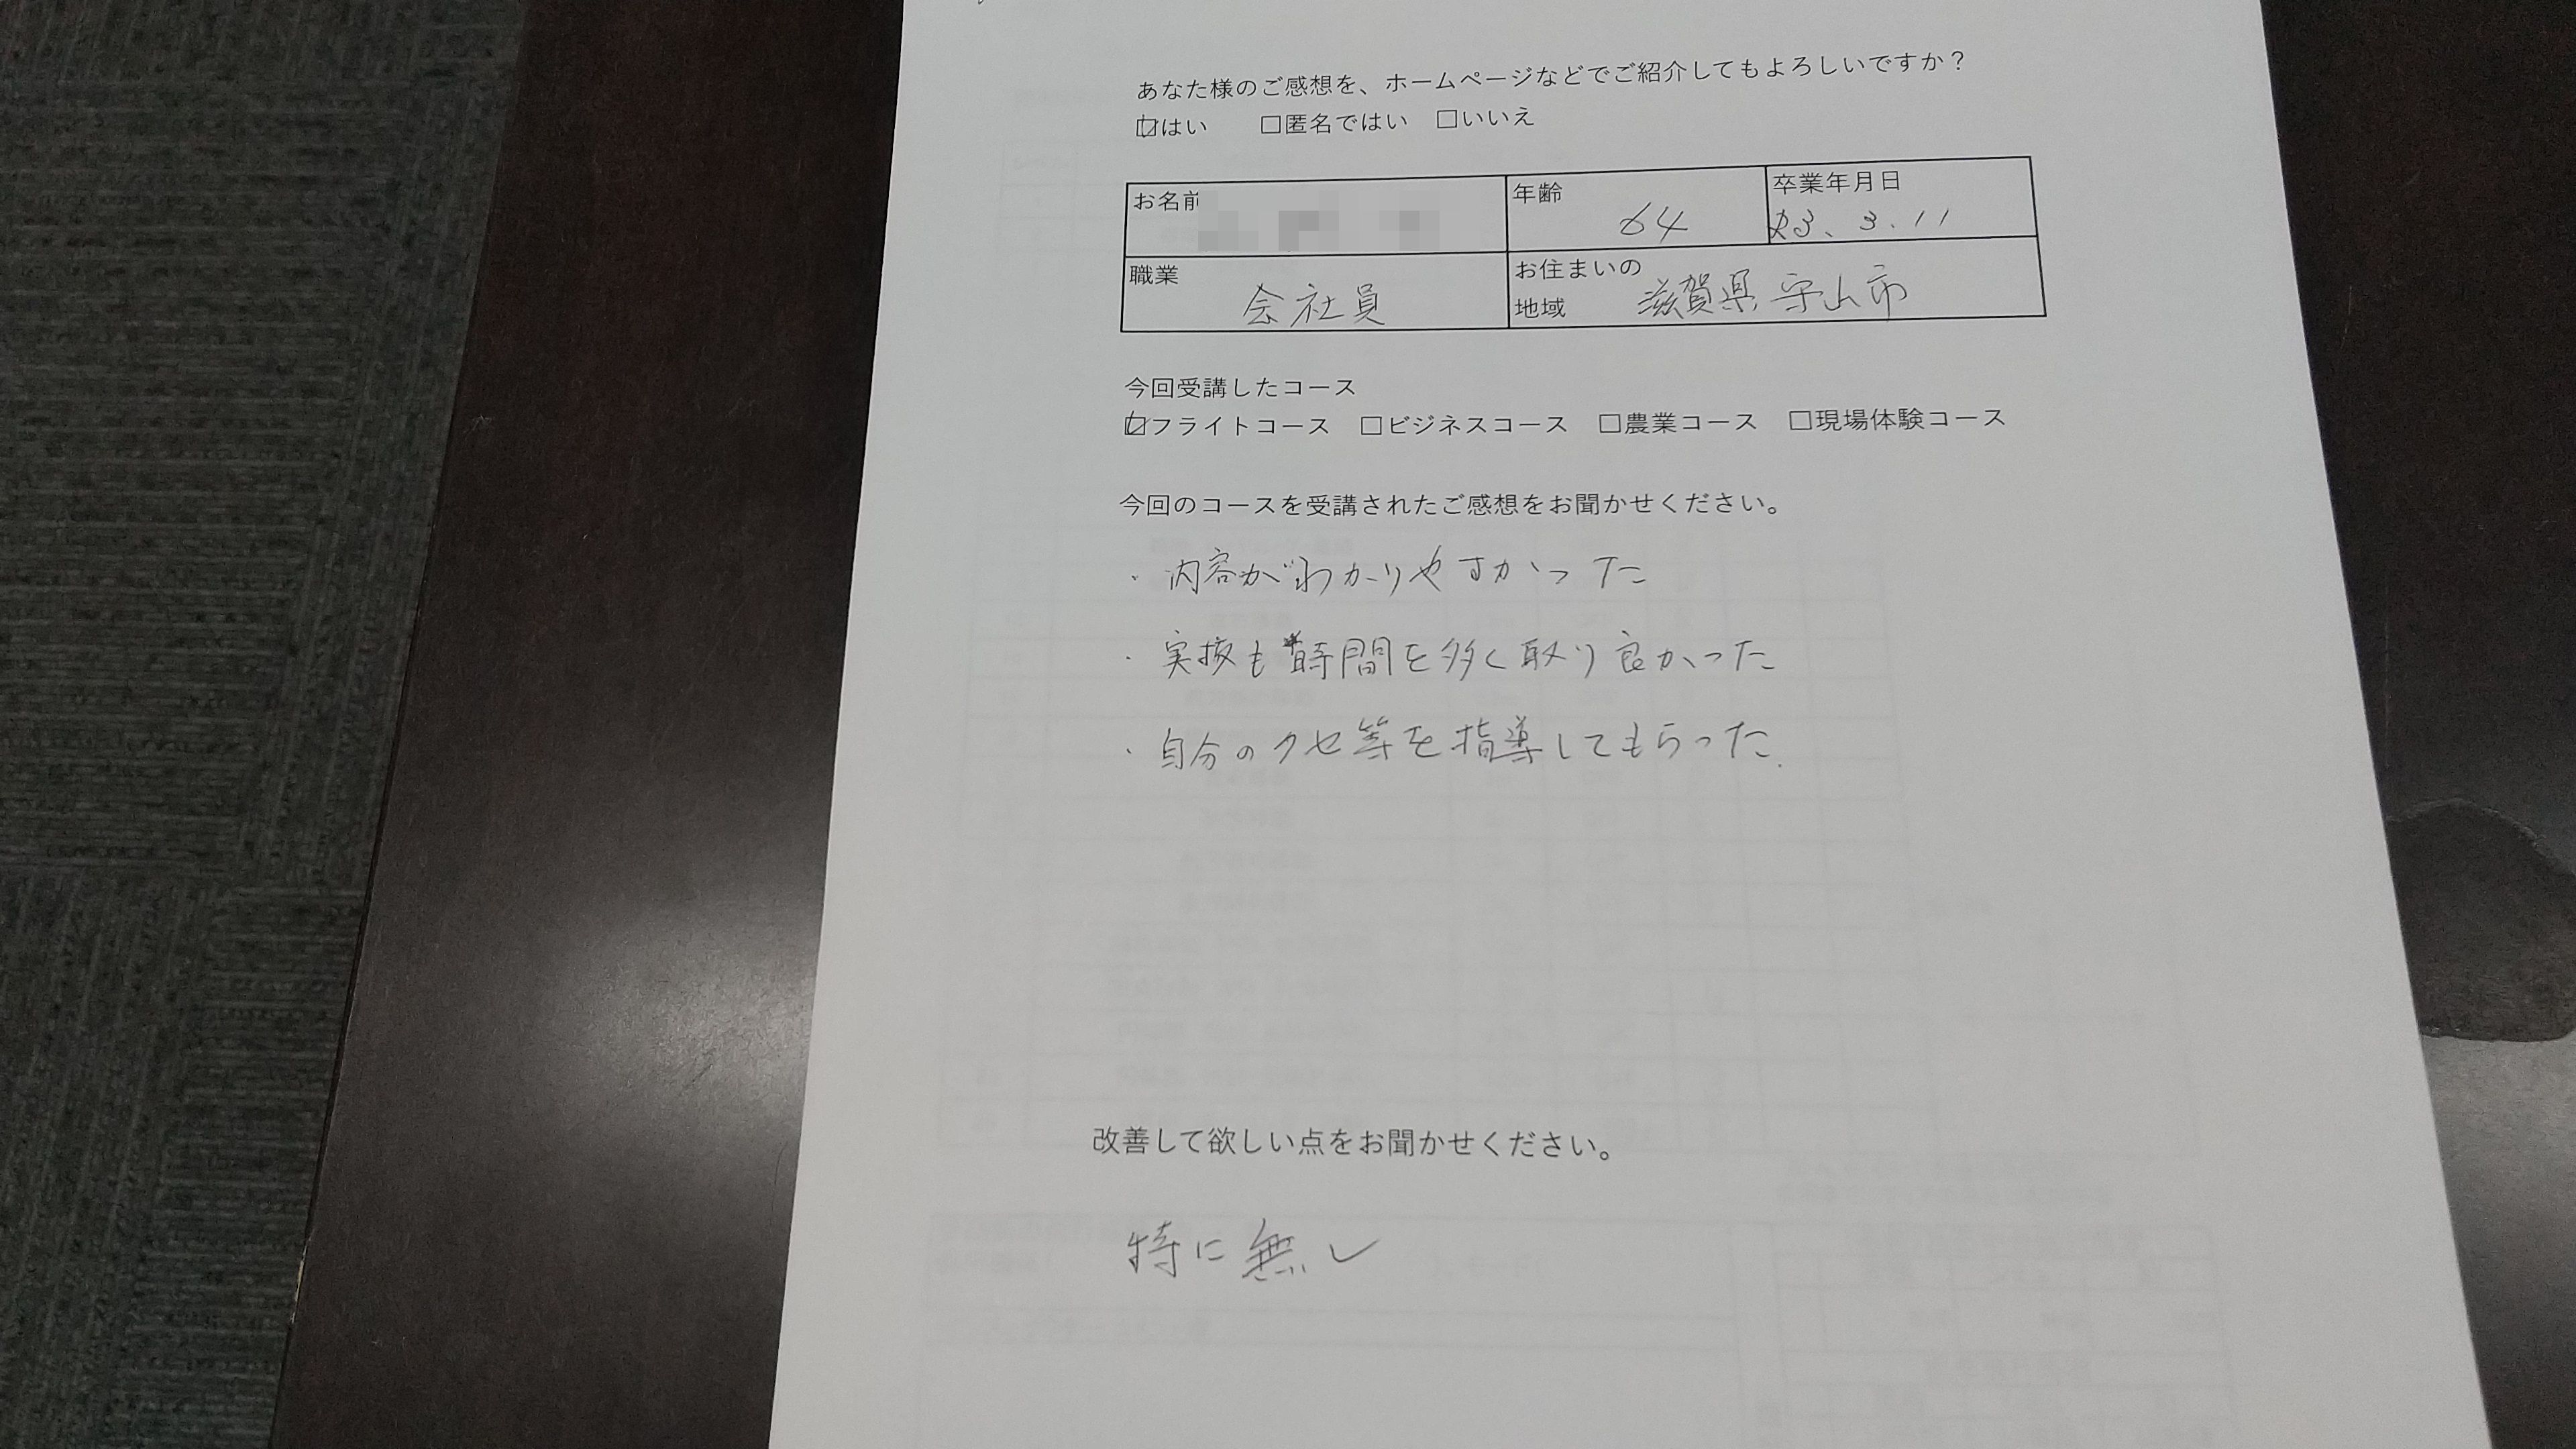 あなた様のご感想を、ホームページなどでご紹介してもよろしいですか?
☑はい □匿名ではい □いいえ
お名前
年齢 64
卒業年月日 R3、3.11
職業 会社員
お住まいの地域 滋賀県守山市
今回受講したコース
☑フライトコース □ビジネスコース □農業コース □現場体験コース
今回のコースを受講されたご感想をお聞かせください。
・内容がわかりやすかった
・実技も時間を多く取り良かった
・自分のクセ等を指導してもらった.
改善して欲しい点をお聞かせください。
特に無し